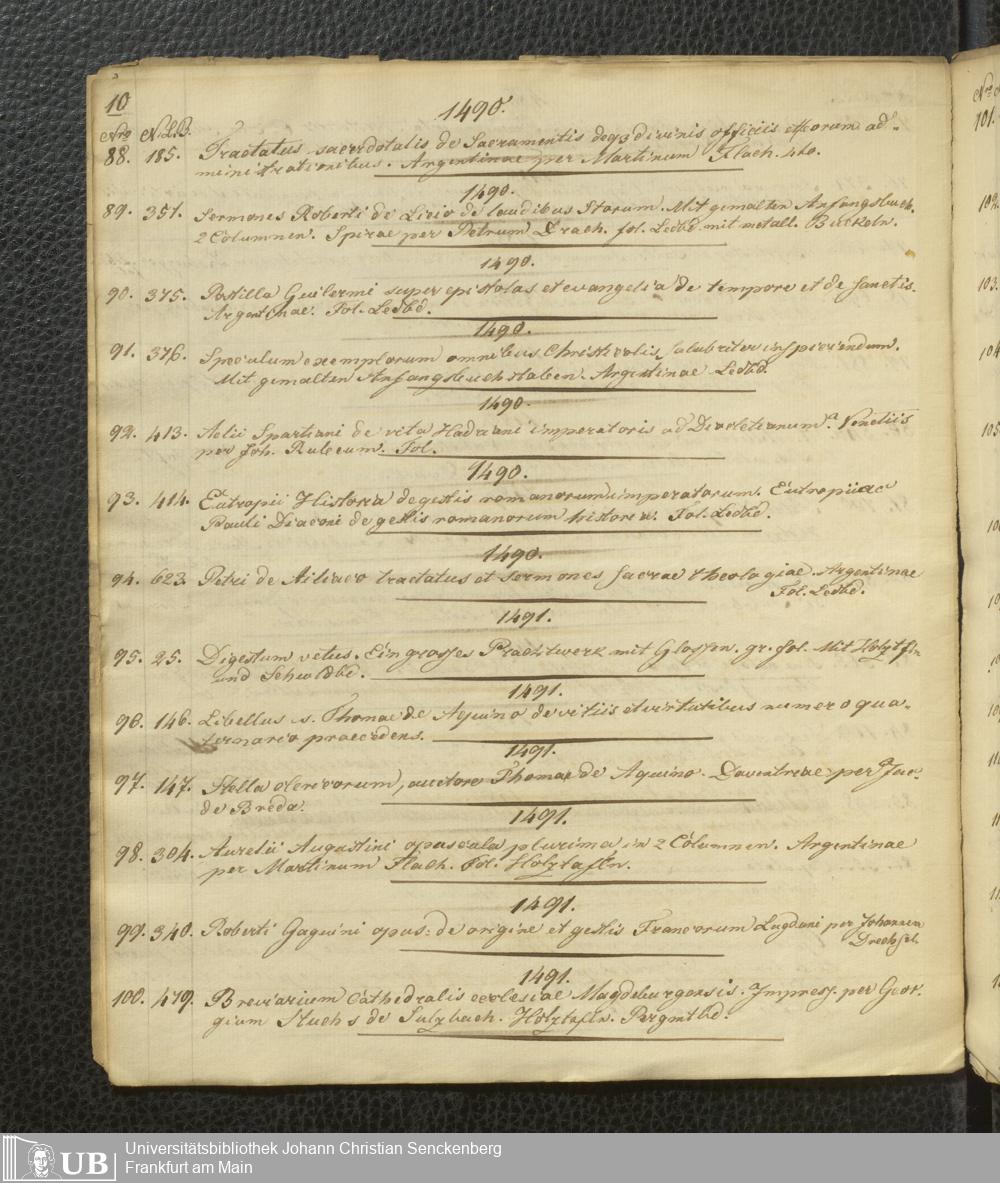 10
1490.
Nro N.L.B.
88. 185. Tractatus sacerdotalis de Sacramentis deq3 divinis officiis et eorum ad-
ministrationibus. Argentinae per Martinum Flach. 4to.
1490.
89. 351. Sermones Roberti de Licio de laudibus Storum. Mit gemalten Anfangsbuch.
2 Columnen. Spirae per Petrum Drach. fol. Ledbd. mit metall. Buckeln.
1490.
90. 375. Postilla Guilermi super epistolas et evangelia de tempore et de sanctis.
Argentinae. Fol. Ledbd.
1490.
91. 376. Speculum exemplorum omnibus Christicolis salubriter inspiciendum.
Mit gemalten Anfangsbuchstaben. Argentinae Ledbd.
1490.
92. 413. Aelii Spartiani de vita Hadriani imperatoris ad Diocletianum. Venetiis
per Joh. Rubeum. Fol.
1490.
93. 414. Eutropii Historia de gestis romanorum imperatorum. Eutropii ac
Pauli Diaconi de gestis romanorum historia. Fol. Ledbd.
1490.
94. 623. Petri de Ailiaco tractatus et sermones sacrae theologiae. Argentinae
Fol. Ledbd.
1491.
95. 25. Digestum vetus. Ein grosses Prachtwerk mit Glossen. gr. fol. Mit Holztfln
und Schwldbd.
1491.
96. 146. Libellus s. Thomae de Aquino de vitiis et virtutibus numero qua-
ternario praecedens.
1491.
97. 147. Stella clericorum, auctore Thomae de Aquino. Daventriae per Jac.
de Breda.
1491.
98. 304. Aurelii Augustini opuscula plurima in 2 Columnen. Argentinae
per Martinum Flach. Fol. Holztafln.
1491.
99. 340. Roberti Gaguini opus: de origine et gestis Francorum Lugduni per Johannem
Drechsel.
1491.
100. 479. Breviarium Cathedralis ecclesiae Magdeburgensis. Impress. per Geor-
gium Stuchs de Sulzbach. Holztafln. Pergmtbd.
UB
Universitätsbibliothek Johann Christian Senckenberg
Frankfurt am Main